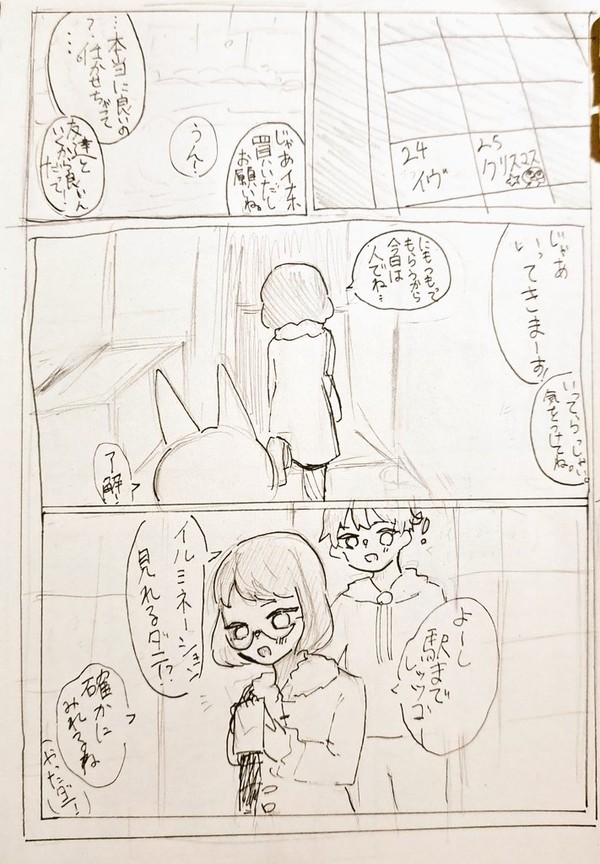 24
イヴ
25
クリスマス
じゃあイナホ
買いだし
お願いね。
うん!
…本当に良いの
?任せちゃって
…
友達と
いくが良いん
だって!
じゃあ
いってきまーす!
いってらっしゃい。
気をつけてね。
にもつもって
もらうから
今日は
人でね…
了解!
よーし
駅まで
レッツゴー
!
イルミネーション
見れるダニ!?
確かに
みれるね
(やったダニ!)